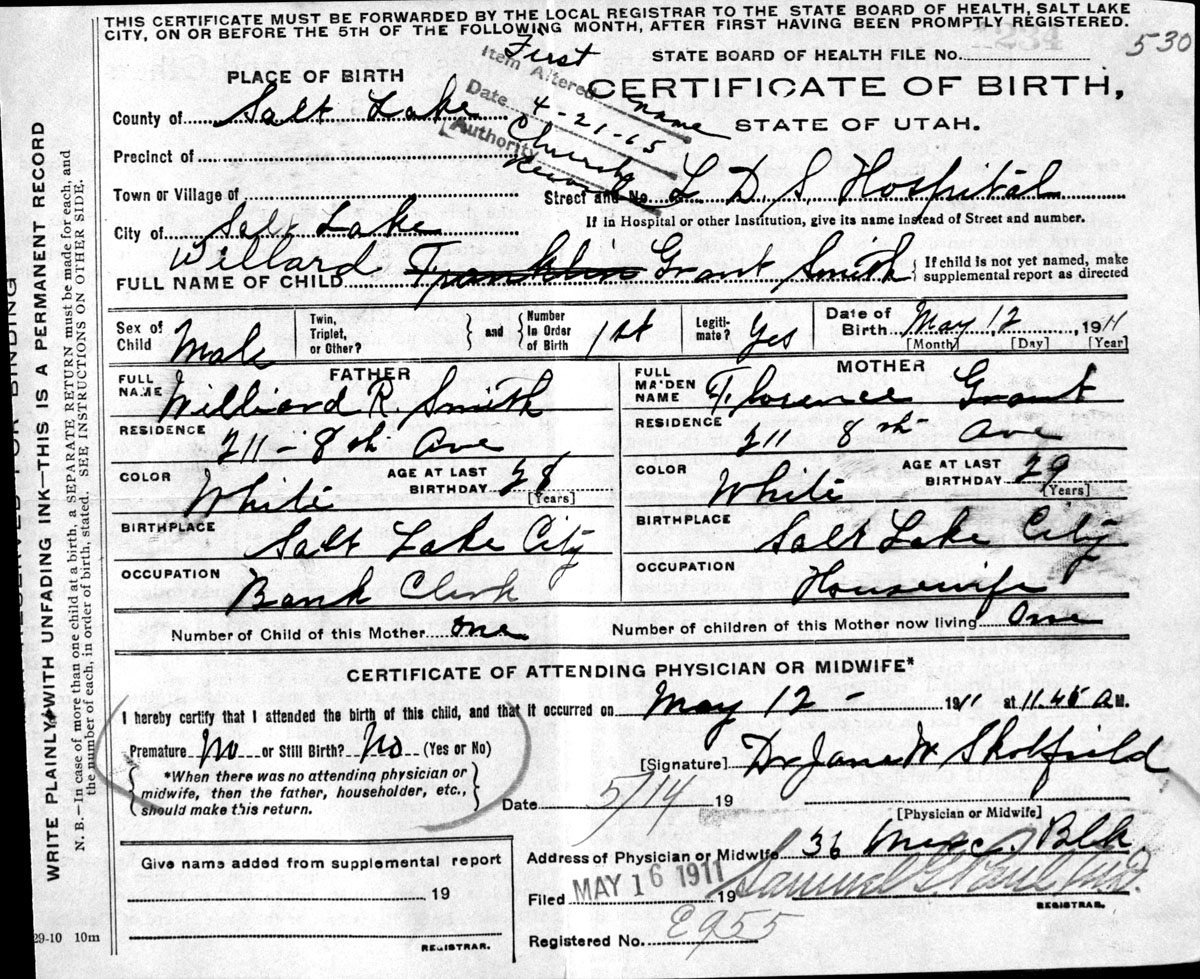 THIS CERTIFICATE MUST BE FORWARDED BY THE LOCAL REGISTRAR TO THE STATE BOARD OF HEALTH, SALT LAKE
CITY, ON OR BEFORE THE 5TH OF THE FOLLOWING MONTH, AFTER FIRST HAVING BEEN PROMPTLY REGISTERED.
530
STATE BOARD OF HEALTH FILE No.
PLACE OF BIRTH
CERTIFICATE OF BIRTH,
STATE OF UTAH.
Item Altered First name
Date 4-21-65
Authority Church Record
County of Salt Lake
Precinct of
Town or Village of
Street and No. L. D. S. Hospital
If in Hospital or other Institution, give its name instead of Street and number.
City of Salt Lake
FULL NAME OF CHILD Willard Franklin Grant Smith
If child is not yet named, make
supplemental report as directed
Sex of Child Male
Twin, Triplet, or Other?
and
Number In Order of Birth 1st
Legiti-mate? Yes
Date of Birth May 12, 1911
[Month] [Day] [Year]
FATHER
FULL NAME Williard R. Smith
RESIDENCE 211 - 8th Ave
COLOR White
AGE AT LAST BIRTHDAY 28 [Years]
BIRTHPLACE Salt Lake City
OCCUPATION Bank Clerk
MOTHER
FULL MAIDEN NAME Florence Grant
RESIDENCE 211 8th Ave
COLOR White
AGE AT LAST BIRTHDAY 29 [Years]
BIRTHPLACE Salt Lake City
OCCUPATION Housewife
Number of Child of this Mother one
Number of children of this Mother now living One
CERTIFICATE OF ATTENDING PHYSICIAN OR MIDWIFE*
I hereby certify that I attended the birth of this child, and that it occurred on May 12 - 1911 at 11.45 A M.
Premature No or Still Birth? No (Yes or No)
*When there was no attending physician or
midwife, then the father, householder, etc.,
should make this return.
[Signature] Dr Jane W Skolfield
Date 5/14 19
[Physician or Midwife]
Address of Physician or Midwife 36 Blk
Filed MAY 16 1911 19
REGISTRAR.
Registered No. E955
Give name added from supplemental report
19
REGISTRAR.
29-10 10m
RESERVED FOR BINDING
WRITE PLAINLY WITH UNFADING INK—THIS IS A PERMANENT RECORD
N. B.—In case of more than one child at a birth, a SEPARATE RETURN must be made for each, and
the number of each, in order of birth, stated. SEE INSTRUCTIONS ON OTHER SIDE.